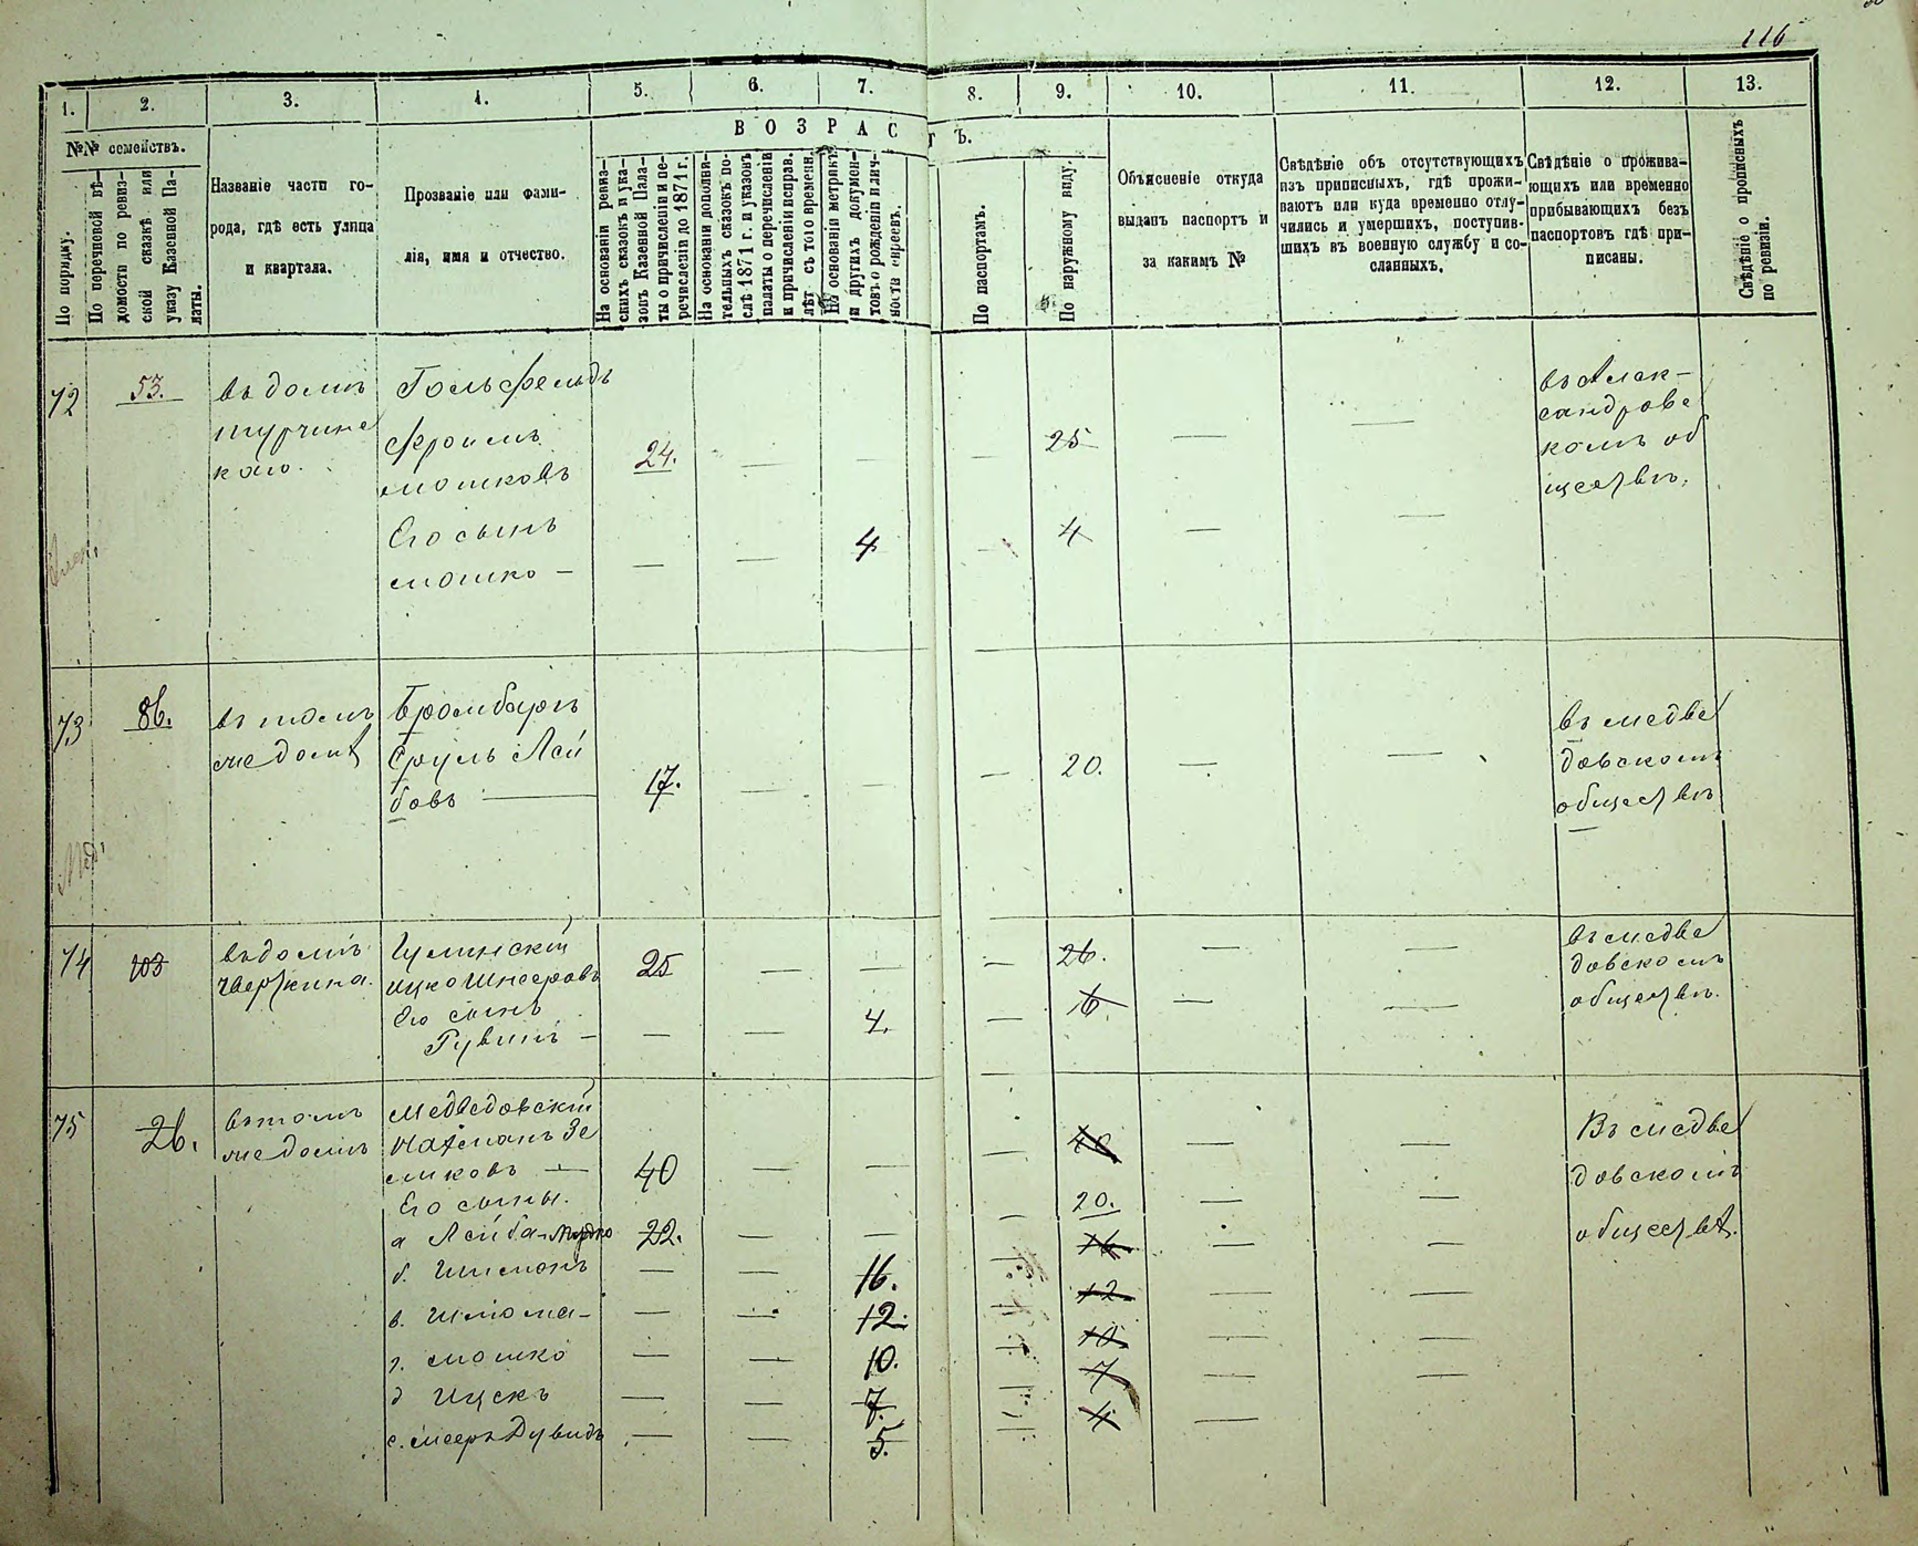 116
1. 2. 3. 4. 5. 6. 7. 8. 9. 10. 11. 12. 13.
№№ семействъ.
По порядку.
По поречневой вѣ-
домости по ревиз-
ской сказкѣ или
указу Казенной Па-
латы.
Названіе части го-
рода, гдѣ есть улица
и квартала.
Прозваніе или фами-
лія, имя и отчество.
ВОЗРАСТЪ.
На основаніи ревиз-
скихъ сказокъ и ука-
зовъ Казенной Пала-
ты о причисленіи и пе-
речисленіи до 1871 г.
На основаніи дополни-
тельныхъ сказокъ по-
слѣ 1871 г. и указовъ
палаты о перечисленіи
и причисленіи исправ.
лѣт съ того времени.
На основаніи метрикъ
и другихъ докумен-
товъ о рожденіи и лич-
ности евреевъ.
По паспортамъ.
По наружному виду.
Объясненіе откуда
выданъ паспортъ и
за какимъ №
Свѣдѣніе объ отсутствующихъ
изъ приписныхъ, гдѣ прожи-
ваютъ или куда временно отлу-
чились и умершихъ, поступив-
шихъ въ военную службу и со-
сланныхъ.
Свѣдѣніе о прожива-
ющихъ или временно
прибывающихъ безъ
паспортовъ гдѣ при-
писаны.
Свѣдѣніе о прописныхъ
по ревизіи.
72 53. въ домѣ Гольфельдъ въ Алек-
турчинс Фроимъ 24. — — — 25 — — сандровс
каго. Мошковъ комъ об
ществѣ.
Его сынъ
Мошко — — — 4 — 4 — —
Алек.
73 86. въ томъ Бромбергъ въ Медве
же домѣ Сруль Лей 17. — — — 20. — — довскомъ
бовъ — обществѣ
Мед.
74 103 въ домѣ 25 — — — 26. — — въ Медве
Ицко Шнееровъ довскомъ
Его сынъ обществѣ.
Рувинъ — — — 4. — 6 — —
75 26. въ томъ Медведовскій Въ Медве
же домѣ Нахманъ Зе довскомъ
ликовъ — 40 — — — 40 — — обществѣ.
Его сыны.
а Лейба-Мордко 22. — — — 20. — —
б. Шимонъ — — 16. — 16 — —
в. Шлома — — — 12. — 12 — —
г. Мошко — — 10. — 10 — —
д Ицекъ — — 7. — 7 — —
е. Меер Дувидъ — — 5. — 4 —